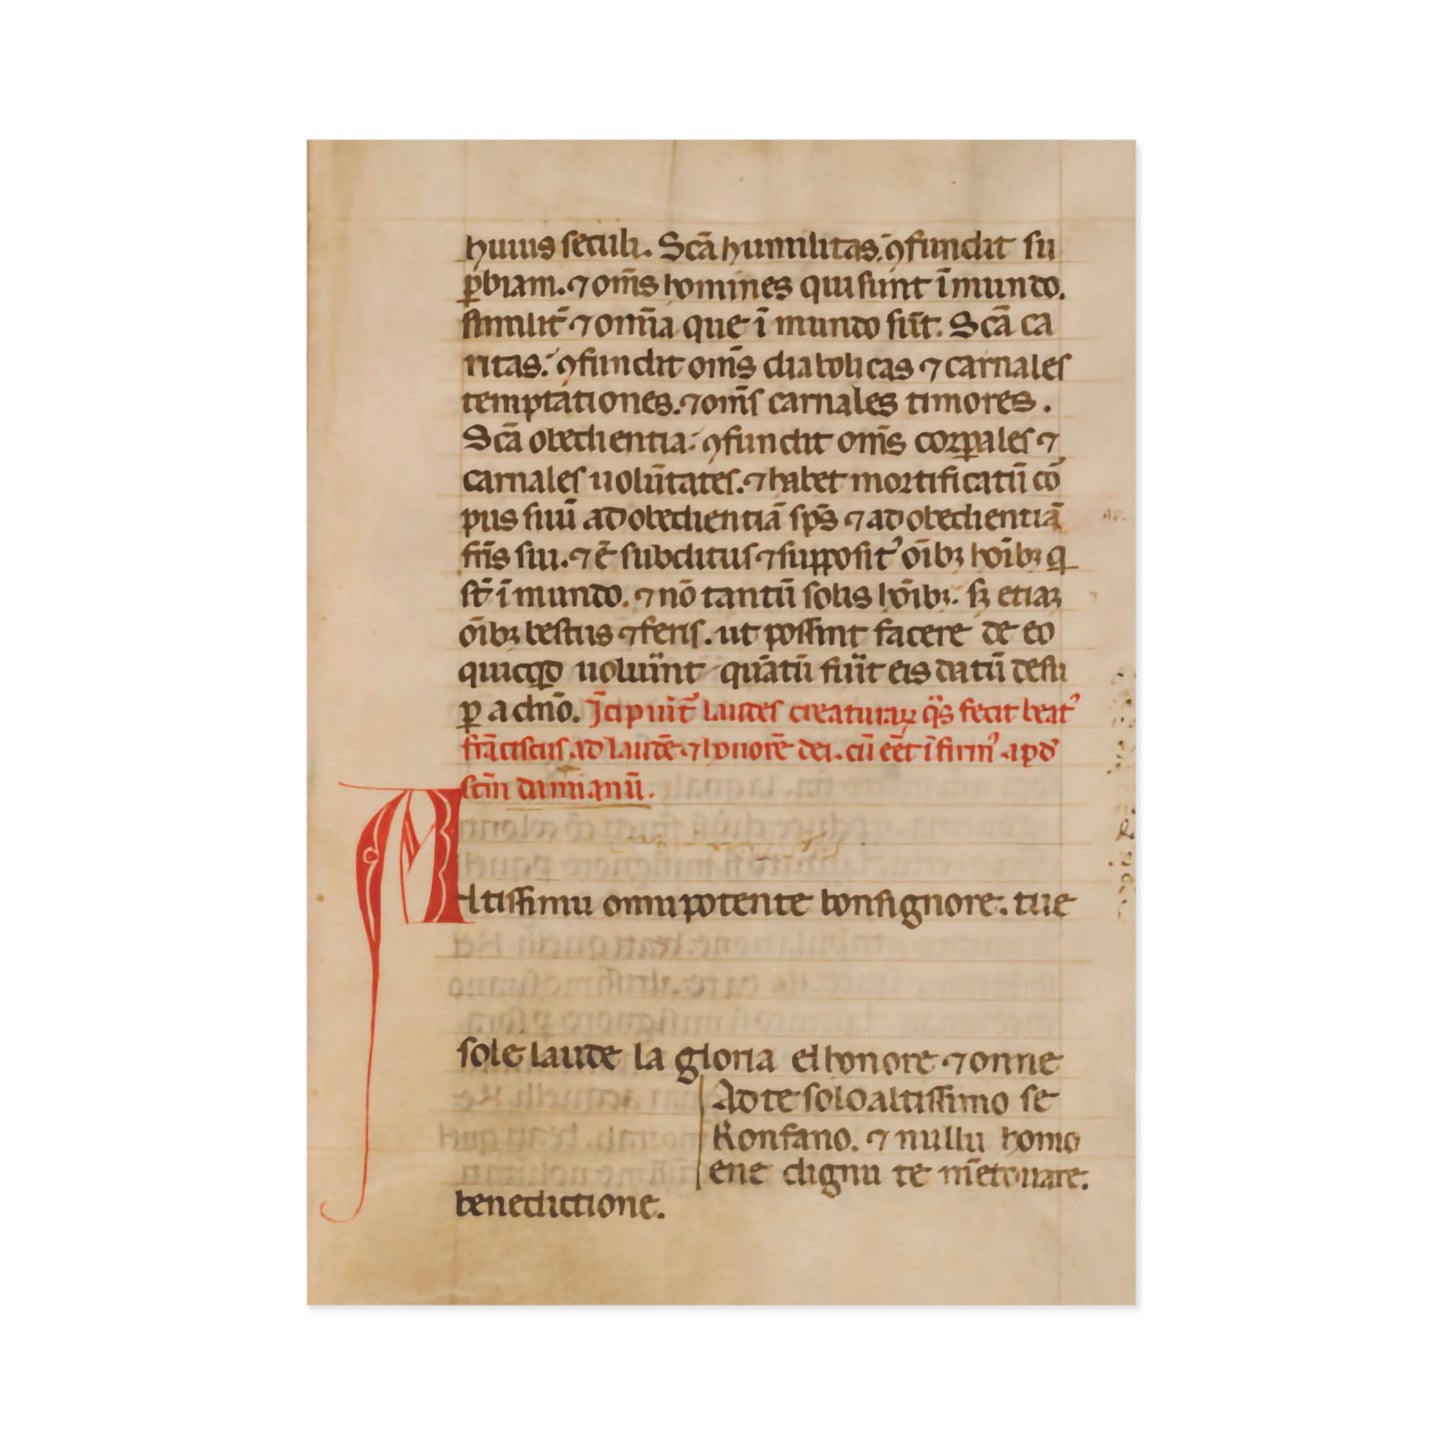 huius seculi. Scā humilitas. ꝯfundit su
ꝑbiam. ⁊ om̄s homines qui sunt ī mundo.
similit̄ ⁊ omīa que ī mundo sūt. Scā ca
ritas. ꝯfundit om̄s diabolicas ⁊ carnales
temptationes. ⁊ om̄s carnales timores.
Scā obedientia. ꝯfundit om̄s corꝑales ⁊
carnales uolūtates. ⁊ habet mortificatū co᷑
pus suū ad obedientiā sp̄s ⁊ ad obedientiā
fr̄is sui. ⁊ ē subditus ⁊ supposit᾽ oībꝫ hoībꝫ q̄
st̄ ī mundo. ⁊ nō tantū solis hoībꝫ. sꝫ etiaꝫ
oībꝫ bestiis ⁊ feris. ut possint facere de eo
quicqͥd uoluerīt quātū fuīt eis datū desu
ꝑ a dn̄o. Īcipiūt laudes creaturaꝝ qͣs fecit beat᾽
frāciscus ad laudē ⁊ honorē dei. cū eēt īfirm᾽ apd̄
scm̄ damianū.
Altissimu omnipotente bonsignore. tue
sole laude la gloria el honore ⁊ onne
Ad te solo altissimo se
Konfano. ⁊ nullu homo
ene dignu te mētouare.
benedictione.